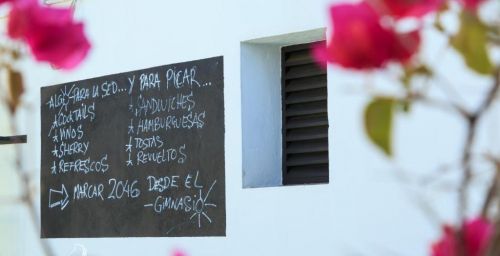 ALGO PARA LA SED... Y PARA PICAR...
* COCKTAILS
* VINOS
* SHERRY
* REFRESCOS
* SANDWICHES
* HAMBURGUESAS
* TOSTAS
* REVUELTOS
MARCAR 2046 DESDE EL
- GIMNASIO